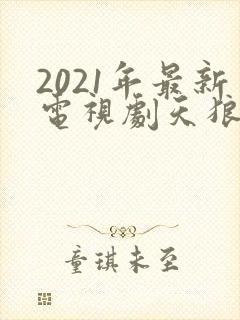 2021年最新
電視劇天狼
童琪未至